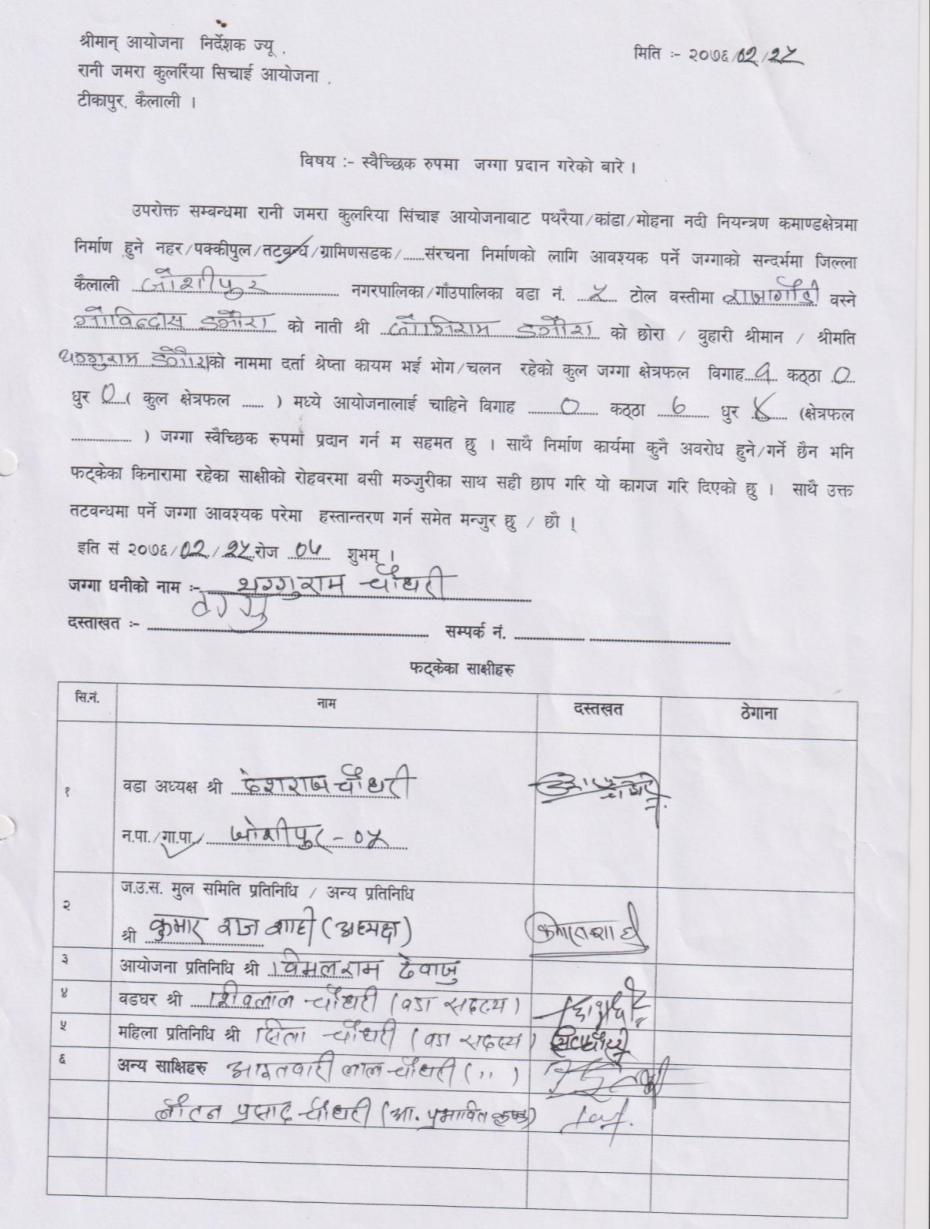 श्रीमान् आयोजना निर्देशक ज्यू .
मिति :- २०७६/०२/२५
रानी जमरा कुलरिया सिचाई आयोजना .
टीकापुर, कैलाली ।
विषय :- स्वैच्छिक रुपमा जग्गा प्रदान गरेको बारे ।
उपरोक्त सम्बन्धमा रानी जमरा कुलरिया सिंचाइ आयोजनाबाट पथरैया/कांडा/मोहना नदी नियन्त्रण कमाण्डक्षेत्रमा
निर्माण हुने नहर/पक्कीपुल/तटबन्ध/ग्रामिणसडक/......संरचना निर्माणको लागि आवश्यक पर्ने जग्गाको सन्दर्भमा जिल्ला
कैलाली जोशीपुर नगरपालिका/गाँउपालिका वडा नं. ५ टोल वस्तीमा वस्ने
गोविन्दास डगौरा को नाती श्री जोगिराम डगौरा को छोरा / बुहारी श्रीमान / श्रीमति
थग्गुराम डगौराको नाममा दर्ता श्रेष्ता कायम भई भोग/चलन रहेको कुल जग्गा क्षेत्रफल विगाह १ कठ्ठा ०
धुर ० ( कुल क्षेत्रफल ...... ) मध्ये आयोजनालाई चाहिने विगाह ० कठ्ठा ६ धुर (क्षेत्रफल
................ ) जग्गा स्वैच्छिक रुपमा प्रदान गर्न म सहमत छु । साथै निर्माण कार्यमा कुनै अवरोध हुने/गर्ने छैन भनि
फट्केका किनारामा रहेका साक्षीको रोहवरमा वसी मञ्जुरीका साथ सही छाप गरि यो कागज गरि दिएको छु । साथै उक्त
तटवन्धमा पर्ने जग्गा आवश्यक परेमा हस्तान्तरण गर्न समेत मन्जुर छु / छौ ।
इति सं २०७६/०२/२५ रोज ०५ शुभम् ।
जग्गा धनीको नाम :- थग्गुराम चौधरी
दस्ताखत :- थग्गु सम्पर्क नं.
फट्केका साक्षीहरु
सि.नं. नाम दस्तखत ठेगाना
१ वडा अध्यक्ष श्री देशराज चौधरी
न.पा./गा.पा./ जोशीपुर - ०५
२ ज.उ.स. मुल समिति प्रतिनिधि / अन्य प्रतिनिधि
श्री कुमार राज शाही (अध्यक्ष)
३ आयोजना प्रतिनिधि श्री विमलराम देवाजु
४ वडघर श्री शिवलाल चौधरी (वडा सदस्य)
५ महिला प्रतिनिधि श्री सिता चौधरी (वडा सदस्य)
६ अन्य साक्षिहरु आइतवारी लाल चौधरी (,,)
प्रसाद चौधरी (आ. प्रभावित कृषक)